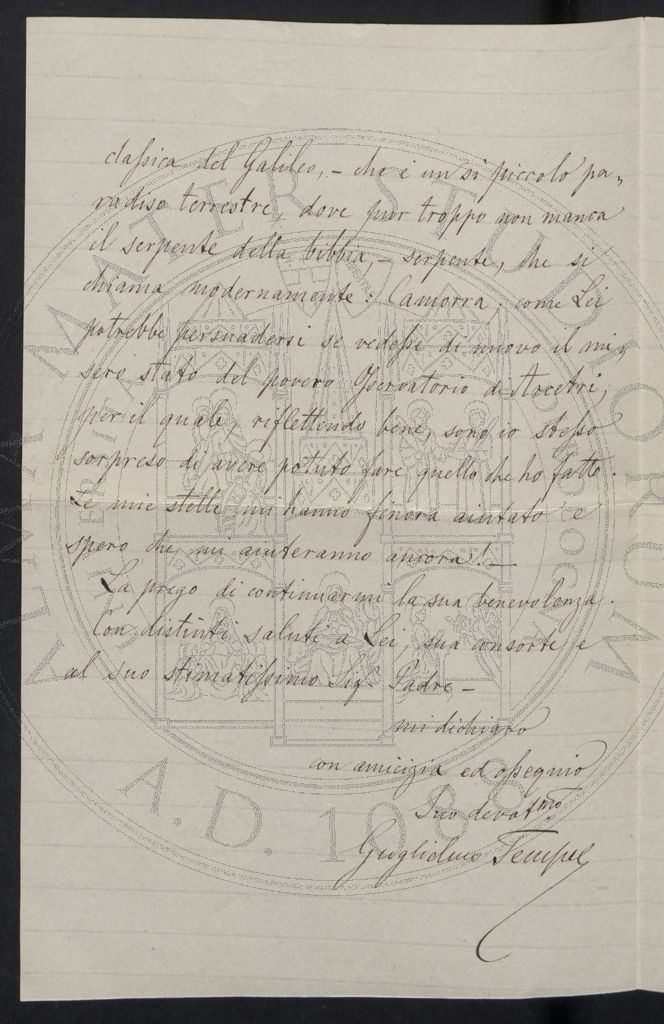 classica del Galileo, - che è un sì piccolo pa„
radiso terrestre, dove pur troppo non manca
il serpente della bibbia, - serpente, che si
chiama modernamente: Camorra: come Lei
potrebbe persuadersi se vedesse di nuovo il mi„
sero stato del povero Osservatorio di Arcetri,
per il quale, riflettendo bene, sono io stesso
sorpreso di avere potuto fare quello che ho fatto.
Le mie stelle mi hanno finora aiutato e
spero che mi aiuteranno ancora! -
La prego di continuarmi la sua benevolenza.
Con distinti saluti a Lei, sua consorte e
al suo stimatissimo Sigr Padre -
mi dichiaro
con amicizia ed ossequio
Suo devotmo
Guglielmo Tempel
ALMA MATER STUDIORUM
A.D. 1088